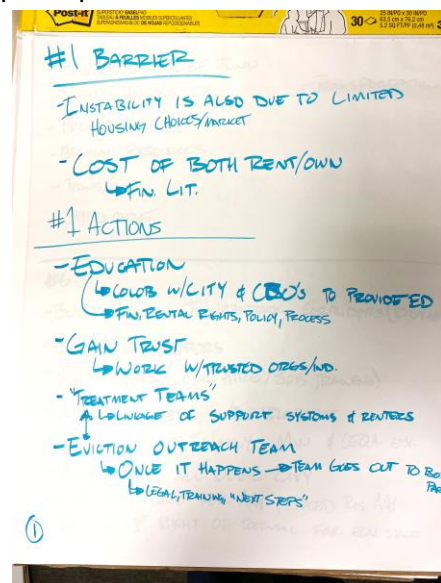 Post-it
30
25 IN/PO x 30 IN/PO
63,5 cm x 76,2 cm
#1 BARRIER
- INSTABILITY IS ALSO DUE TO LIMITED
HOUSING CHOICES/MARKET
- COST OF BOTH RENT/OWN
↳ FIN. LIT.
#1 ACTIONS
- EDUCATION
↳ COLOB W/CITY & CBO'S TO PROVIDE ED
↳ FIN, RENTAL RIGHTS, POLICY, PROCESS
- GAIN TRUST
↳ WORK W/TRUSTED ORGS/IND.
- "TREATMENT TEAMS"
↳ LINKAGE OF SUPPORT SYSTEMS & RENTERS
- EVICTION OUTREACH TEAM
↳ ONCE IT HAPPENS → TEAM GOES OUT TO BO
PAR
↳ LEGAL, TRAINING, "NEXT STEPS"
1